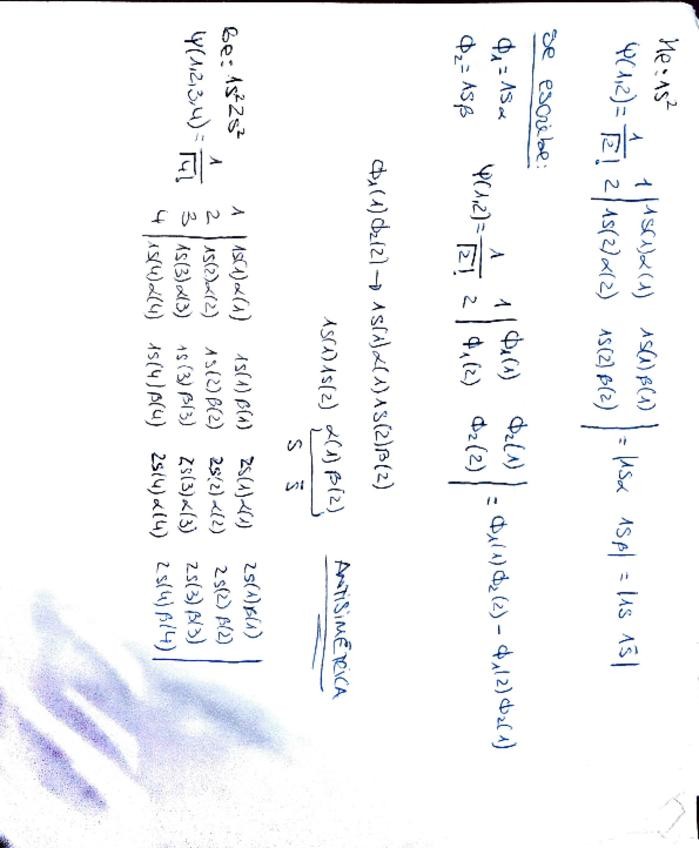 He: 1s²
ψ(1,2) = 1/√2! 1 | 1s(1)α(1) 1s(1)β(1) |
2 | 1s(2)α(2) 1s(2)β(2) | = |1sα 1sβ| = |1s 1s̄|
Se escribe:
ϕ₁ = 1sα
ϕ₂ = 1sβ
ψ(1,2) = 1/√2! 1 | ϕ₁(1) ϕ₂(1) |
2 | ϕ₁(2) ϕ₂(2) | = ϕ₁(1)ϕ₂(2) - ϕ₁(2)ϕ₂(1)
ϕ₁(1)ϕ₂(2) → 1s(1)α(1)1s(2)β(2)
1s(1)1s(2) α(1)β(2)
s s̄
ANTISIMÉTRICA
Be: 1s²2s²
ψ(1,2,3,4) = 1/√4!
1 | 1s(1)α(1) 1s(1)β(1) 2s(1)α(1) 2s(1)β(1) |
2 | 1s(2)α(2) 1s(2)β(2) 2s(2)α(2) 2s(2)β(2) |
3 | 1s(3)α(3) 1s(3)β(3) 2s(3)α(3) 2s(3)β(3) |
4 | 1s(4)α(4) 1s(4)β(4) 2s(4)α(4) 2s(4)β(4) |